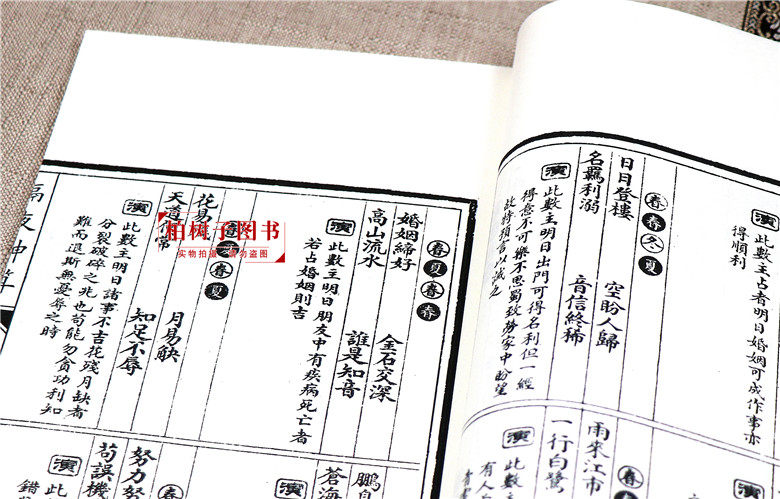 此數主占者明日婚姻可成作事亦
得順利
春春冬夏
日日登樓 空盼人歸
名羈利溺 音信終稀
演
此數主明日出門可得名利但一經
得意不可樂不思蜀致勞家中盼望
故特預言以誡之
春
雨來江市
一行白鷺
演
此數主
有人
春夏春春
婚姻締好 金石交深
高山流水 誰是知音
演
此數主明日朋友中有疾病死亡者
若占婚姻則吉
春夏
花易 月易缺
天道 常 知足不辱
演
此數主明日諸事不吉花殘月缺者
分裂破碎之兆也苟能勿貪功利知
難而退斯無憂辱之時
蒼海
演
春
努力努
苟誤機
演
此
錯
柏树子图书
实物拍摄 请勿盗图